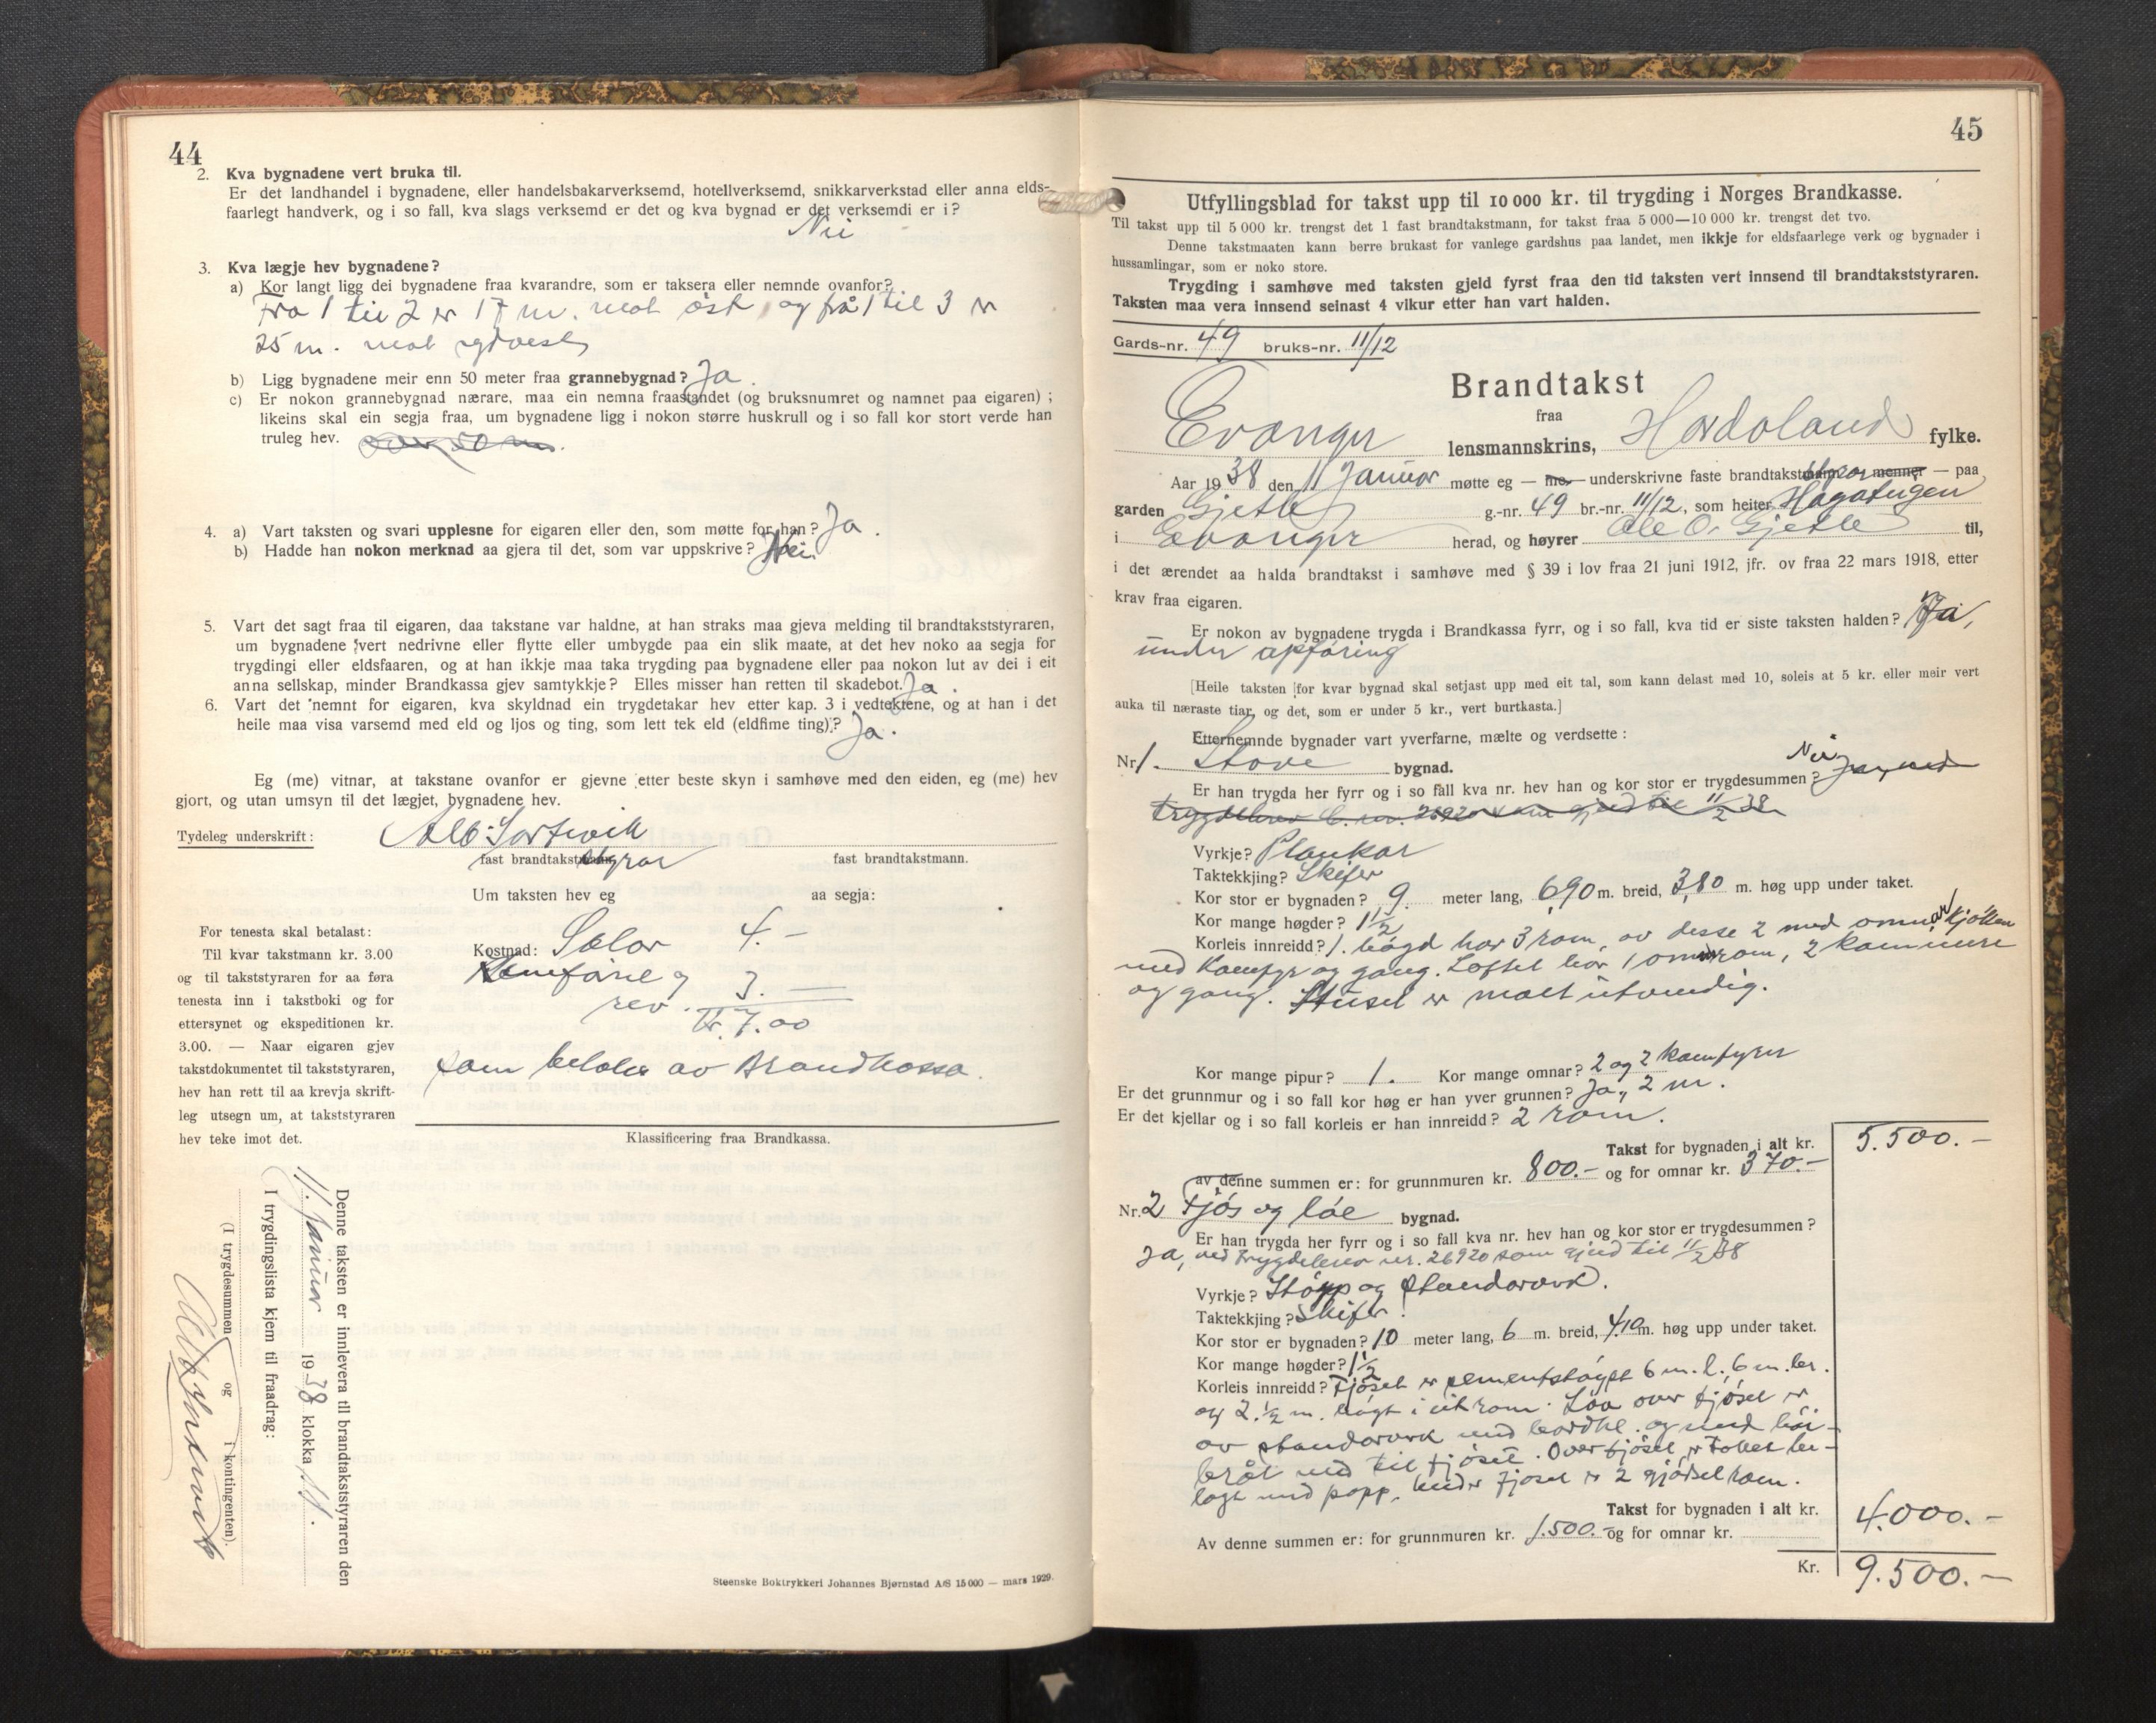 44
2. Kva bygnadene vert bruka til.
Er det landhandel i bygnadene, eller handelsbakarverksemd, hotellverksemd, snikkarverkstad eller anna elds-
faarlegt handverk, og i so fall, kva slags verksemd er det og kva bygnad er det verksemdi er i?
Nei
3. Kva lægje hev bygnadene?
a) Kor langt ligg dei bygnadene fraa kvarandre, som er taksera eller nemnde ovanfor?
Fra 1 til 2 er 17 m. mot öst, og frå 1 til 3 er
25 m. mot sydvest
b) Ligg bygnadene meir enn 50 meter fraa grannebygnad? Ja.
c) Er nokon grannebygnad nærare, maa ein nemna fraastandet (og bruksnumret og namnet paa eigaren);
likeins skal ein segja fraa, um bygnadene ligg i nokon større huskrull og i so fall kor stort verde han
truleg hev.
4. a) Vart taksten og svari upplesne for eigaren eller den, som møtte for han? Ja.
b) Hadde han nokon merknad aa gjera til det, som var uppskrive? Nei
5. Vart det sagt fraa til eigaren, daa takstane var haldne, at han straks maa gjeva melding til brandtakststyraren,
um bygnadene vert nedrivne eller flytte eller umbygde paa ein slik maate, at det hev noko aa segja for
trygdingi eller eldsfaaren, og at han ikkje maa taka trygding paa bygnadene eller paa nokon lut av dei i eit
anna sellskap, minder Brandkassa gjev samtykkje? Elles misser han retten til skadebot. Ja.
6. Vart det nemnt for eigaren, kva skyldnad ein trygdetakar hev etter kap. 3 i vedtektene, og at han i det
heile maa visa varsemd med eld og ljos og ting, som lett tek eld (eldfime ting)? Ja.
Eg (me) vitnar, at takstane ovanfor er gjevne etter beste skyn i samhøve med den eiden, eg (me) hev
gjort, og utan umsyn til det lægjet, bygnadene hev.
Tydeleg underskrift:
fast brandtakststyrar fast brandtakstmann.
Um taksten hev eg aa segja:
For tenesta skal betalast:
Til kvar takstmann kr. 3.00
og til takststyraren for aa føra
tenesta inn i takstboki og for
ettersynet og ekspeditionen kr.
3.00. — Naar eigaren gjev
takstdokumentet til takststyraren,
hev han rett til aa krevja skrift-
leg utsegn um, at takststyraren
hev teke imot det.
Kostnad: 4.-
3.—
Kr. 7.00
som betales av Brandkassa.
Klassificering fraa Brandkassa.
Denne taksten er innlevera til brandtakststyraren den
11. Januar 1938 klokka
I trygdingslista kjem til fraadrag:
(I trygdesummen og i kontingenten).
Steenske Boktrykkeri Johannes Bjørnstad A/S 15 000 — mars 1929.
45
Utfyllingsblad for takst upp til 10 000 kr. til trygding i Norges Brandkasse.
Til takst upp til 5 000 kr. trengst det 1 fast brandtakstmann, for takst fraa 5 000—10 000 kr. trengst det tvo.
Denne takstmaaten kann berre brukast for vanlege gardshus paa landet, men ikkje for eldsfaarlege verk og bygnader i
hussamlingar, som er noko store.
Trygding i samhøve med taksten gjeld fyrst fraa den tid taksten vert innsend til brandtakststyraren.
Taksten maa vera innsend seinast 4 vikur etter han vart halden.
Gards-nr. 49 bruks-nr. 11/12
Brandtakst
fraa
Evanger lensmannskrins, Hordoland fylke.
Aar 1938 den 11 Januar møtte eg — me — underskrivne faste brandtakststyrar menner — paa
garden Gjetle g.-nr. 49 br.-nr. 11/12, som heiter
i Evanger herad, og høyrer Ole O. Gjetle til,
i det ærendet aa halda brandtakst i samhøve med § 39 i lov fraa 21 juni 1912, jfr. ov fraa 22 mars 1918, etter
krav fraa eigaren.
Er nokon av bygnadene trygda i Brandkassa fyrr, og i so fall, kva tid er siste taksten halden? Ja,
under opföring
[Heile taksten for kvar bygnad skal setjast upp med eit tal, som kann delast med 10, soleis at 5 kr. eller meir vert
auka til næraste tiar, og det, som er under 5 kr., vert burtkasta.]
Etternemnde bygnader vart yverfarne, mælte og verdsette:
Nr. 1. Stove bygnad.
Er han trygda her fyrr og i so fall kva nr. hev han og kor stor er trygdesummen? Nei
Vyrkje? Plankar
Taktekkjing? Skifer
Kor stor er bygnaden? 9. meter lang, 6,90 m. breid, 3,80 m. høg upp under taket.
Kor mange høgder? 1 1/2
Korleis innreidd? 1. högd har 3 rom, av desse 2 med omnar, kjökken
med komfyr og gang. Loftet har 1 omnrom, 2 kammere
og gang. Huset er malt utvendig.
Kor mange pipur? 1. Kor mange omnar? 2 og 2 komfyrer
Er det grunnmur og i so fall kor høg er han yver grunnen? Ja, 2 m.
Er det kjellar og i so fall korleis er han innreidd? 2 rom.
Takst for bygnaden i alt kr. 5.500.-
av denne summen er: for grunnmuren kr. 800.- og for omnar kr. 370.-
Nr. 2 Fjös og löe bygnad.
Er han trygda her fyrr og i so fall kva nr. hev han og kor stor er trygdesummen?
Ja, ved trygdebrev nr. 26920 som gjeld til 11/2 38
Vyrkje? Stöyp og standarverk.
Taktekkjing? Skifer.
Kor stor er bygnaden? 10 meter lang, 6 m. breid, 4,10 m. høg upp under taket.
Kor mange høgder? 1 1/2
Korleis innreidd? Fjöset er sementstöypt 6 m. l., 6 m. br.
og 2 1/2 m. högt i eit rom. Löa over fjöset er
av standarverk med bordkl. og med höi-
bröt ned til fjöset. Over fjöset er taket be-
lagt med papp. Under fjöset er 2 gjödselrom.
Takst for bygnaden i alt kr. 4.000.-
Av denne summen er: for grunnmuren kr. 1.500.- og for omnar kr.
Kr. 9.500.-